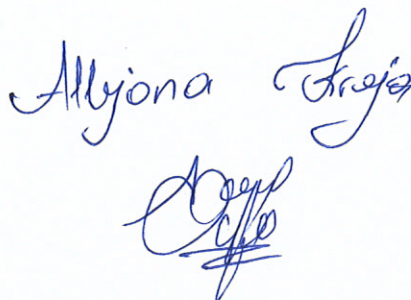 Albjona Kroja